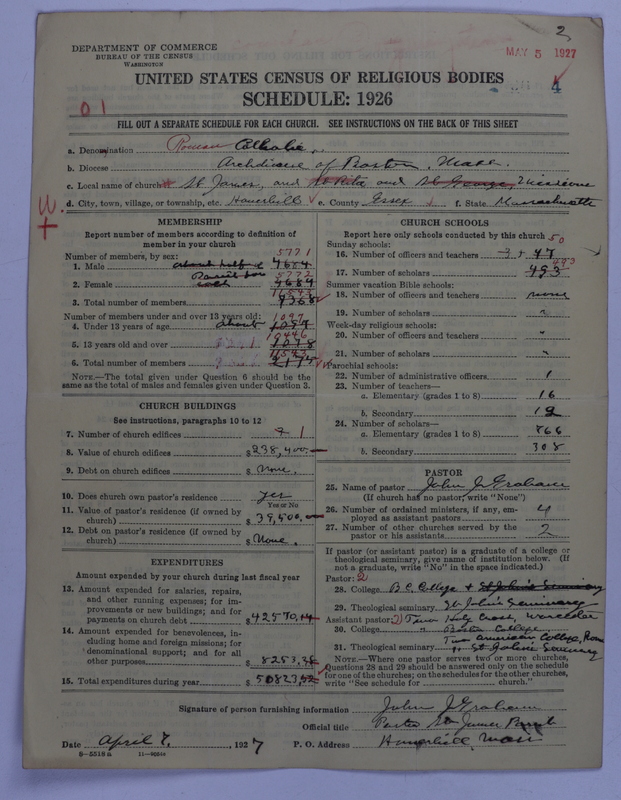 2
DEPARTMENT OF COMMERCE
BUREAU OF THE CENSUS
WASHINGTON
MAY 5 1927
4
UNITED STATES CENSUS OF RELIGIOUS BODIES
SCHEDULE: 1926
01
FILL OUT A SEPARATE SCHEDULE FOR EACH CHURCH. SEE INSTRUCTIONS ON THE BACK OF THIS SHEET
a. Denomination Roman Catholic
b. Diocese Archdiocese of Boston, Mass.
c. Local name of church St James, and St Rita and St George, Missions
d. City, town, village, or township, etc. Haverhill e. County Essex f. State Massachusetts
MEMBERSHIP
Report number of members according to definition of
member in your church
Number of members, by sex:
5771
1. Male about half & 4684
5772
2. Female 4684
11543
3. Total number of members 9368
Number of members under and over 13 years old:
1097
4. Under 13 years of age about 1097
10446
5. 13 years old and over
11543
6. Total number of members
NOTE.—The total given under Question 6 should be the
same as the total of males and females given under Question 3.
CHURCH BUILDINGS
See instructions, paragraphs 10 to 12
7. Number of church edifices 1
8. Value of church edifices $ 238,400.
9. Debt on church edifices $ None.
10. Does church own pastor's residence yes
Yes or No
11. Value of pastor's residence (if owned by
church) $ 39,400.
12. Debt on pastor's residence (if owned by
church) $ None.
EXPENDITURES
Amount expended by your church during last fiscal year
13. Amount expended for salaries, repairs,
and other running expenses; for im-
provements or new buildings; and for
payments on church debt $ 42570.14
14. Amount expended for benevolences, in-
cluding home and foreign missions; for
denominational support; and for all
other purposes $ 8253.38
15. Total expenditures during year $ 50823.52
CHURCH SCHOOLS
Report here only schools conducted by this church
Sunday schools: 50
16. Number of officers and teachers 3 + 47
493
17. Number of scholars 493
Summer vacation Bible schools:
18. Number of officers and teachers none
19. Number of scholars "
Week-day religious schools:
20. Number of officers and teachers "
21. Number of scholars "
Parochial schools:
22. Number of administrative officers 1
23. Number of teachers—
a. Elementary (grades 1 to 8) 16
b. Secondary 12
24. Number of scholars—
a. Elementary (grades 1 to 8) 766
b. Secondary 308
PASTOR
25. Name of pastor John J Graham
(If church has no pastor, write "None")
26. Number of ordained ministers, if any, em-
ployed as assistant pastors 4
27. Number of other churches served by the
pastor or his assistants 2
If pastor (or assistant pastor) is a graduate of a college or
theological seminary, give name of institution below. (If
not a graduate, write "No" in the space indicated.)
Pastor: 2
28. College B.C. College & St John's Seminary
29. Theological seminary St John's Seminary
Assistant pastor: 2) Two Holy Cross, Worcester
30. College " Boston College
Two American College, Rome
31. Theological seminary " St John's Seminary
NOTE.—Where one pastor serves two or more churches,
Questions 28 and 29 should be answered only on the schedule
for one of the churches; on the schedules for the other churches,
write "See schedule for church."
Signature of person furnishing information John J Graham
Official title Pastor St James Parish
Date April 7, 1927 P. O. Address Haverhill, Mass
8-5518 a